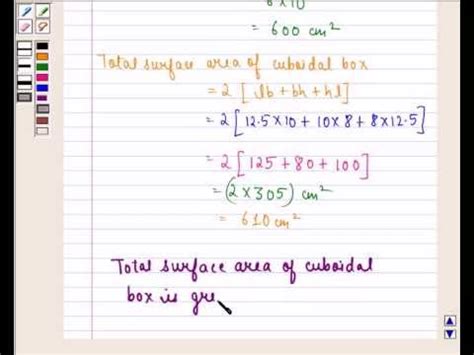 6×10
= 600 cm²
Total surface area of cuboidal box
= 2 [ lb + bh + hl ]
= 2 [ 12.5×10 + 10×8 + 8×12.5 ]
= 2 [ 125 + 80 + 100 ]
= (2 × 305) cm²
= 610 cm²
Total surface area of cuboidal
box is gre